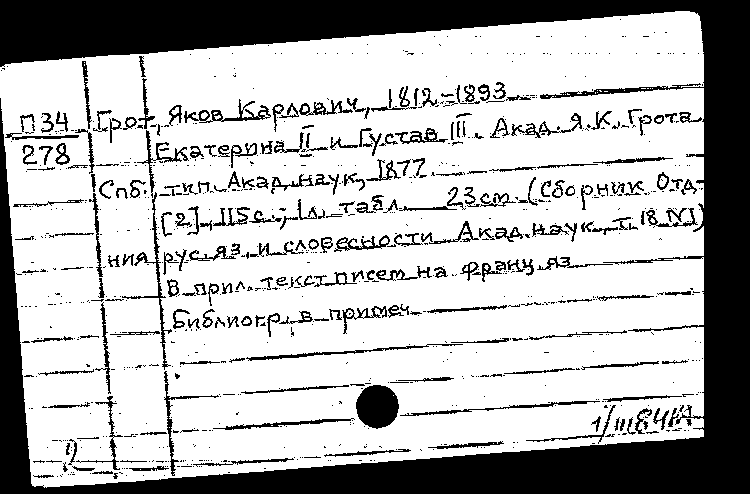 П34 Грот, Яков Карлович, 1812-1893
278 Екатерина II и Густав III. Акад. Я.К. Грота.
Спб., тип. Акад. наук, 1877.
[2], 115с.; 1л. табл. 23см. (Сборник Отд-
ния рус. яз. и словесности Акад. наук, т. 18 №1)
В прил. текст писем на франц. яз.
Библиогр. в примеч.
2